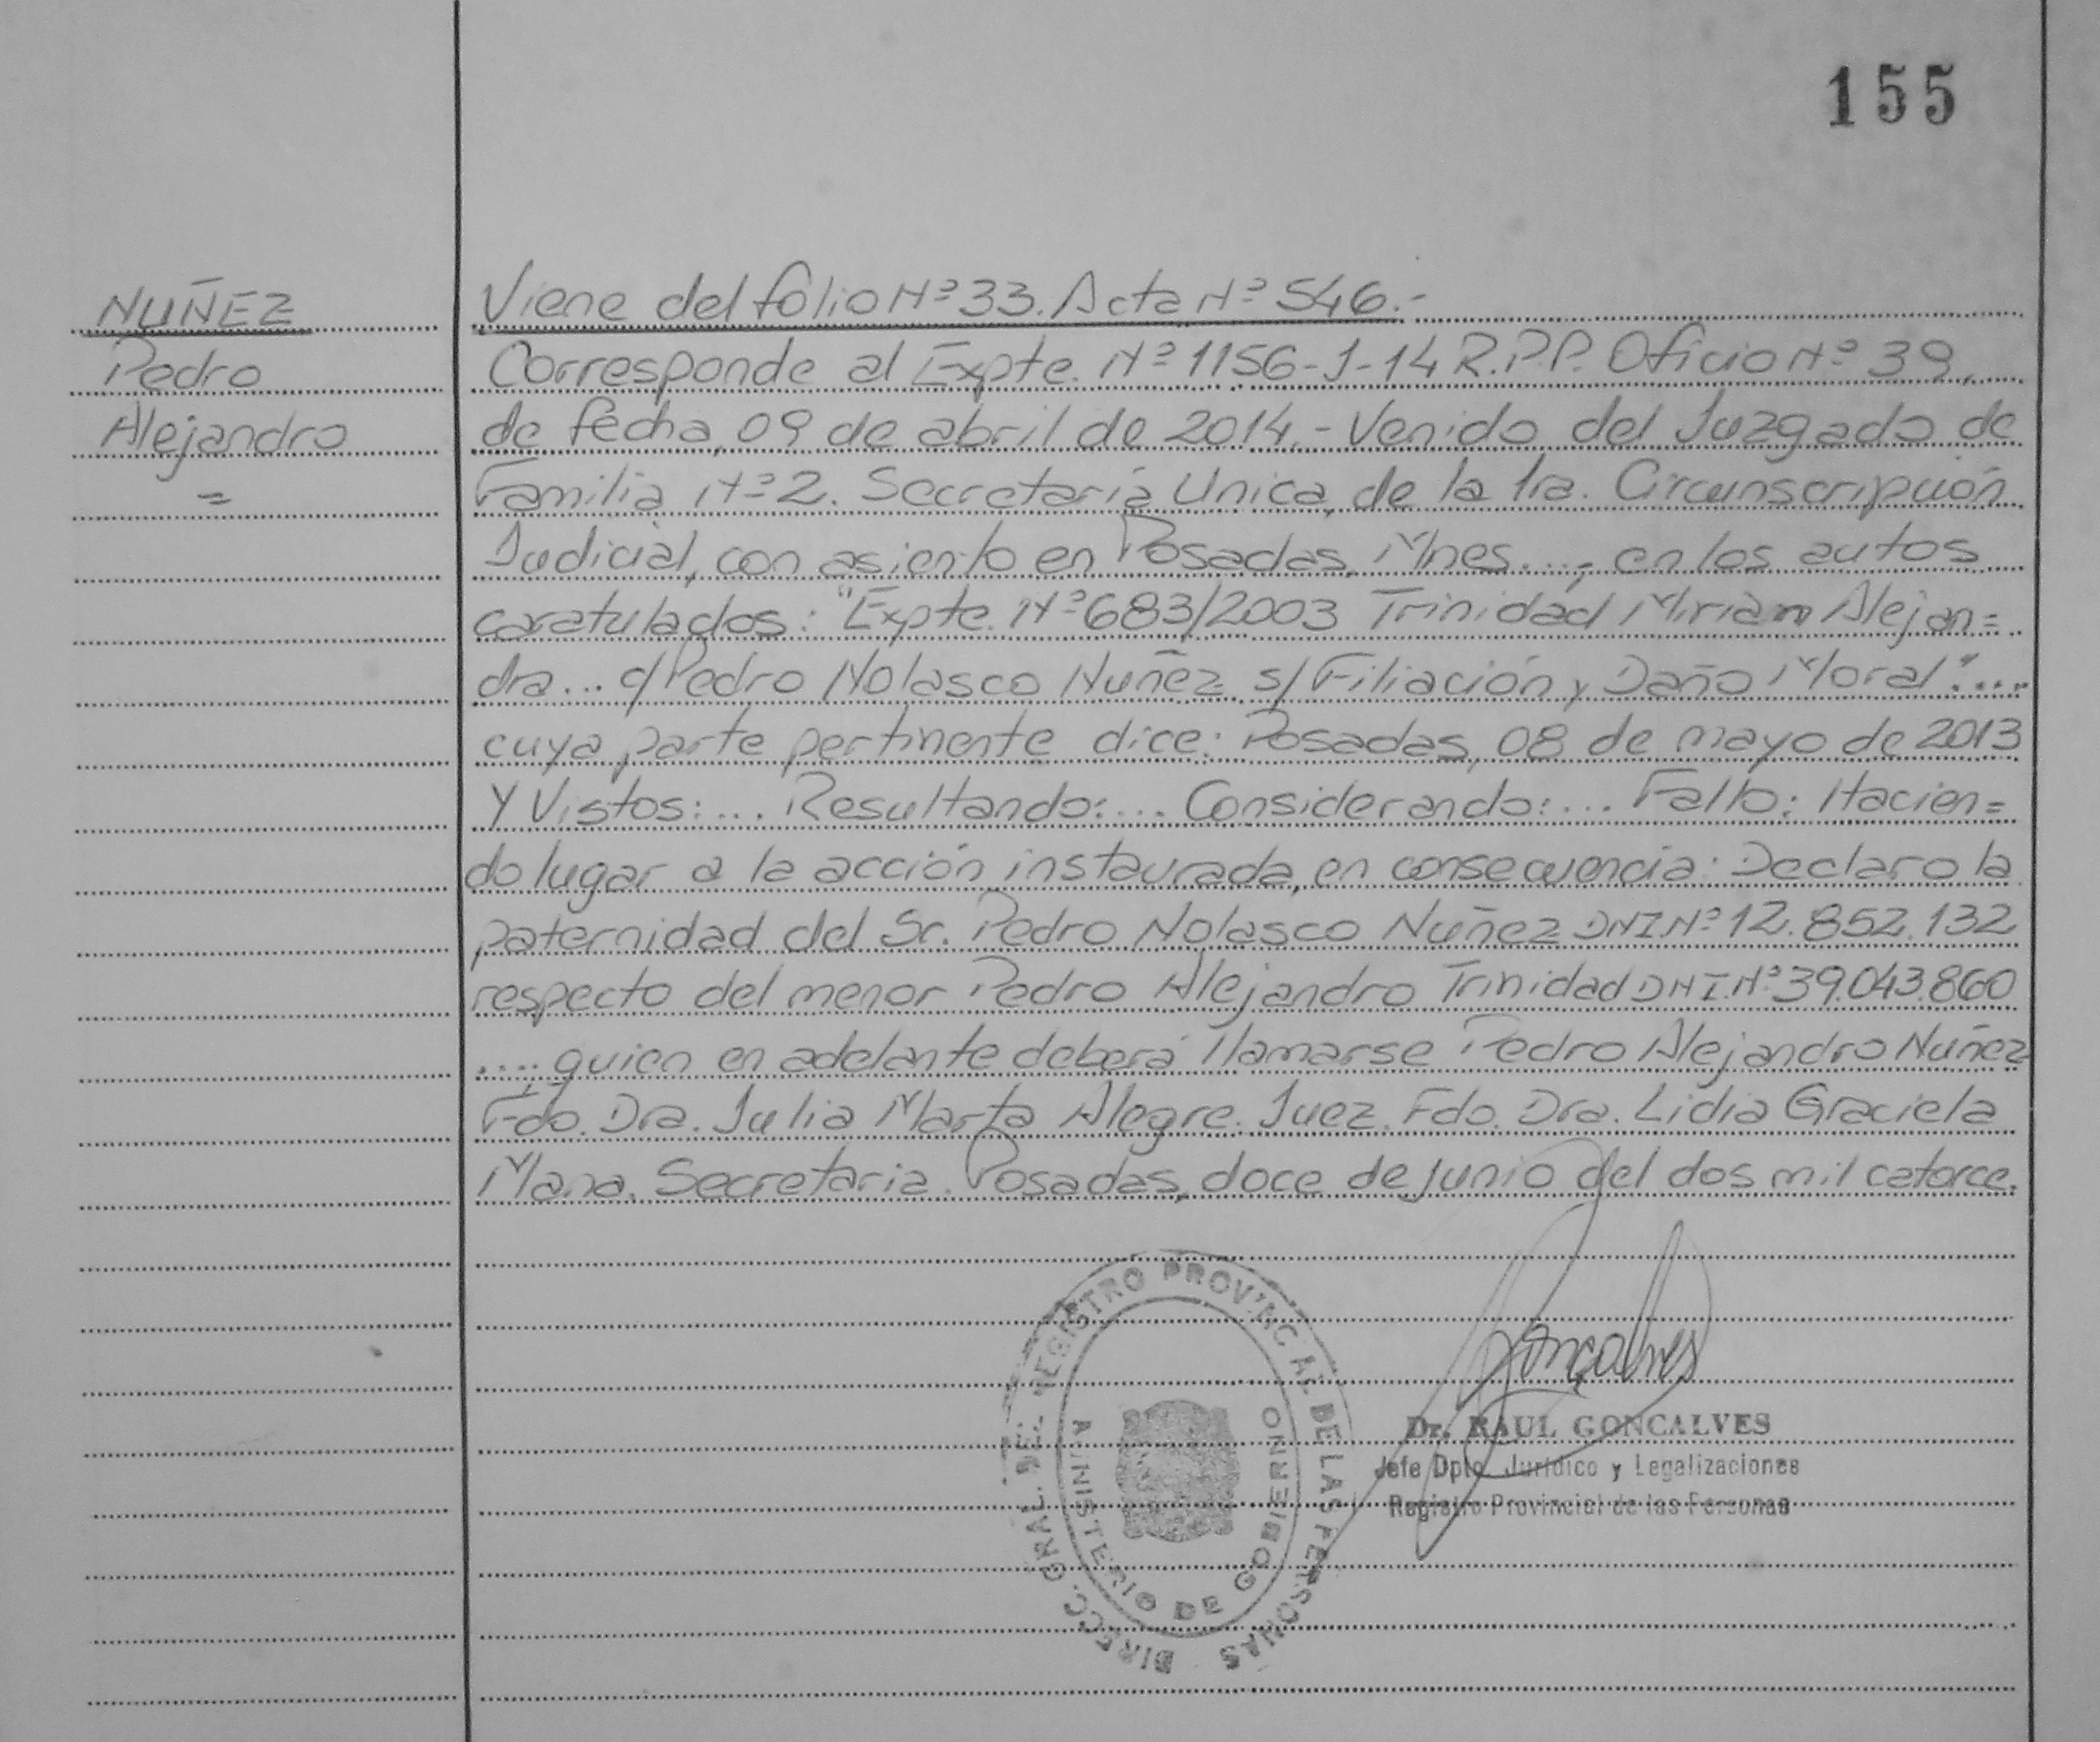 155
NUÑEZ
Pedro
Alejandro
=
Viene del folio Nº 33. Acta Nº 546.-
Corresponde al Expte. Nº 1156-J-14 R.P.P. Oficio Nº 39,
de fecha, 09 de abril de 2014.- Venido del Juzgado de
Familia Nº 2. Secretaría Unica, de la 1ra. Circunscripción
Judicial, con asiento en Posadas, Mnes...., en los autos
caratulados: "Expte. Nº 683/2003 Trinidad Miriam Alejan=
dra... c/Pedro Nolasco Nuñez s/ Filiación y Daño Moral"....
cuya parte pertinente dice: Posadas, 08 de mayo de 2013
Y Vistos:... Resultando:.... Considerando:... Fallo: Hacien=
do lugar a la acción instaurada, en consecuencia: Declaro la
paternidad del Sr. Pedro Nolasco Nuñez DNI.Nº 12.852.132
respecto del menor Pedro Alejandro Trinidad DNI.Nº 39.043.860
.... quien en adelante deberá llamarse Pedro Alejandro Nuñez
Fdo. Dra. Julia Marta Alegre. Juez. Fdo. Dra. Lidia Graciela
Mana. Secretaria. Posadas, doce de junio del dos mil catorce.
DIRECC. GRAL. DEL REGISTRO PROVINCIAL DE LAS PERSONAS
MINISTERIO DE GOBIERNO
Goncalves
Dr. RAUL GONCALVES
Jefe Dpto. Jurídico y Legalizaciones
Registro Provincial de las Personas